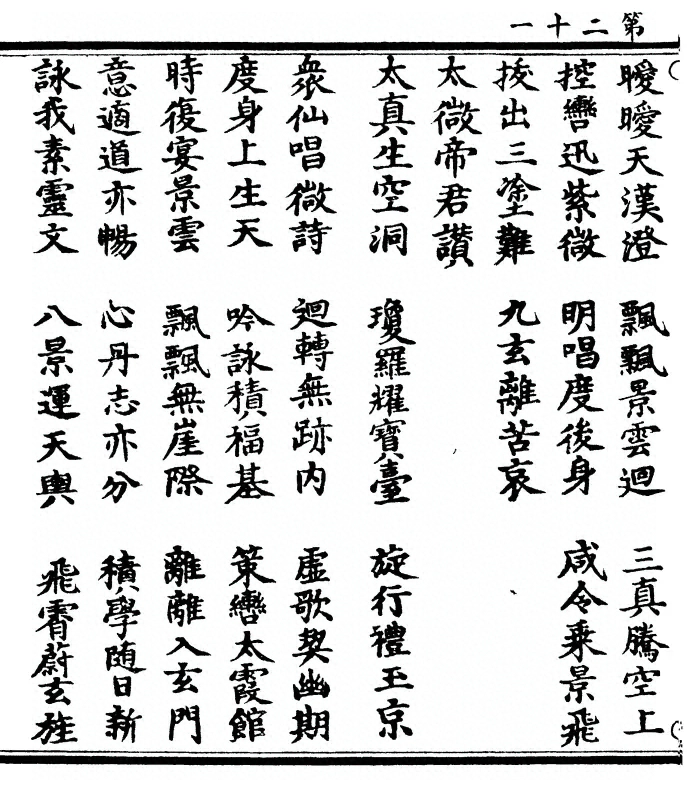 第二十一
曖曖天漢澄 飄飄景雲迴 三真騰空上
控轡迅紫微 明唱度後身 咸令乘景飛
拔出三塗難 九玄離苦哀
太微帝君讚
太真生空洞 瓊羅耀寶臺 旋行禮玉京
衆仙唱微詩 迴轉無跡內 虛歌契幽期
度身上生天 吟詠積福基 策轡太霞館
時復宴景雲 飄飄無崖際 離離入玄門
意適道亦暢 心丹志亦分 積學隨日新
詠我素靈文 八景運天輿 飛霄蔚玄旌